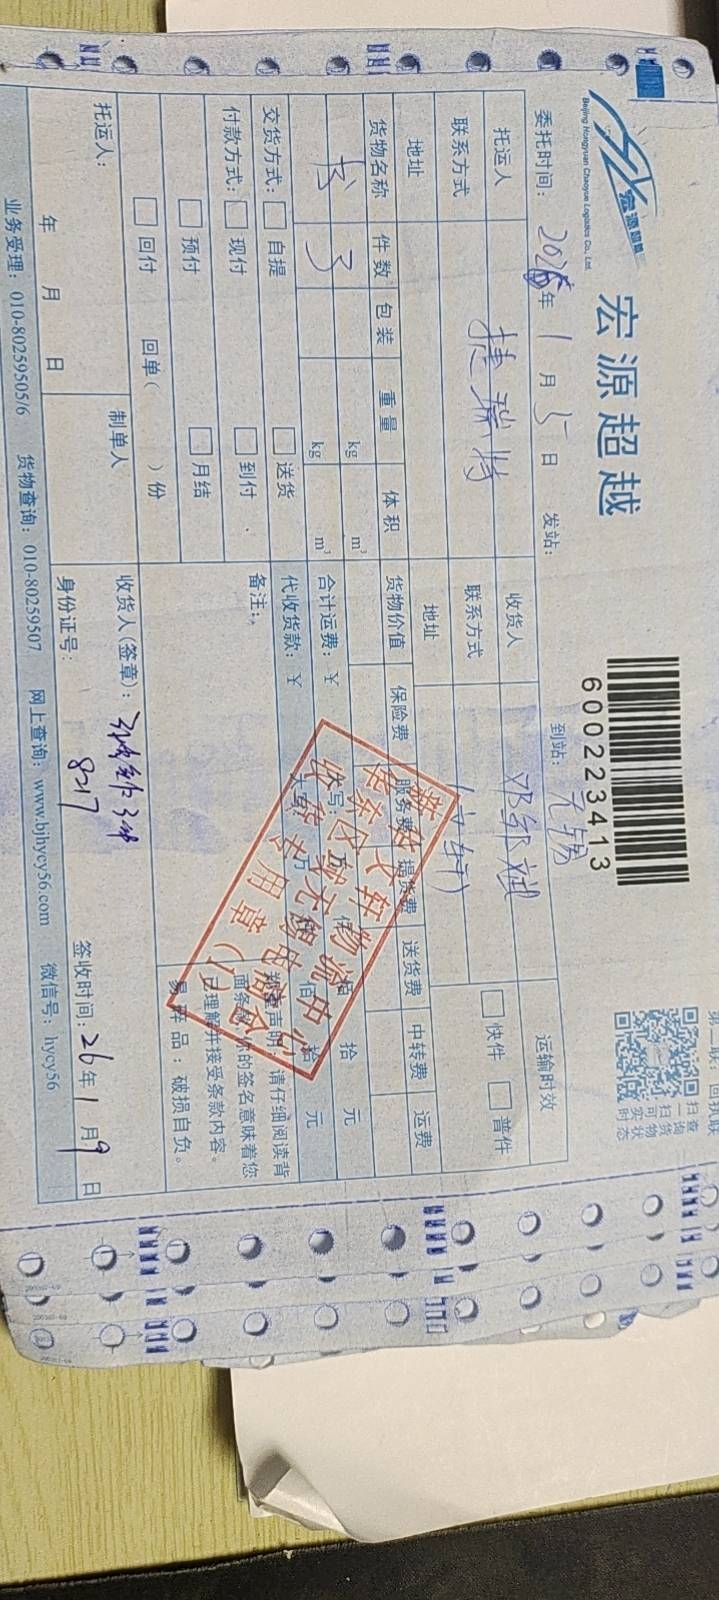 宏源超越
Beijing Hongyuan Chaoyue Logistics Co., Ltd.
宏源超越
600223413
第二联：回执联
扫一扫
查询货物
可实时状态
委托时间： 2026年 1 月 5 日 发站： 到站： 无锡
托运人 捷瑞特 收货人 邓邹斌 运输时效
联系方式 联系方式 (文轩) 快件 普件
地址 地址
货物名称 件数 包装 重量 体积 货物价值 保险费 服务费 提货费 送货费 中转费 运费
书 3 kg m³
kg m³ 合计运费：￥ 大写： 万 仟 佰 拾 元
交货方式： 自提 送货 代收货款：￥ 大写： 万 仟 佰 拾 元
付款方式： 现付 到付 备注： 郑重声明：请仔细阅读背
预付 月结 面条款，你的签名意味着您
已理解并接受条款内容。
回付 回单( )份 易碎品：破损自负。
托运人： 制单人 收货人(签章)：
年 月 日 身份证号： 8217 签收时间： 26年 1 月 9 日
业务受理：010-80259505/6 货物查询：010-80259507 网上查询：www.bjhycy56.com 微信号：hycy56